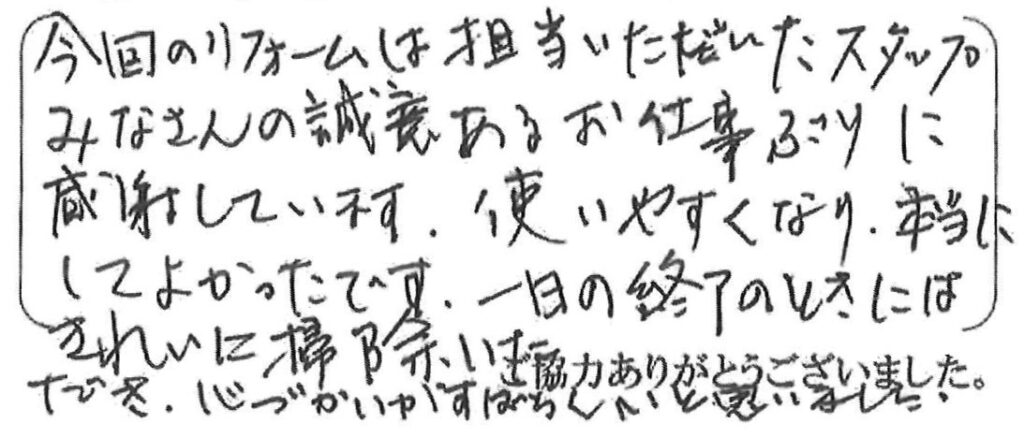 今回のリフォームは担当いただいたスタッフ
みなさんの誠意あるお仕事ぶりに
感謝しています。使いやすくなり、本当に
してよかったです。一日の終了のときには
きれいに掃除いた
だき、心づかいがすばらしいと思いました。
ご協力ありがとうございました。